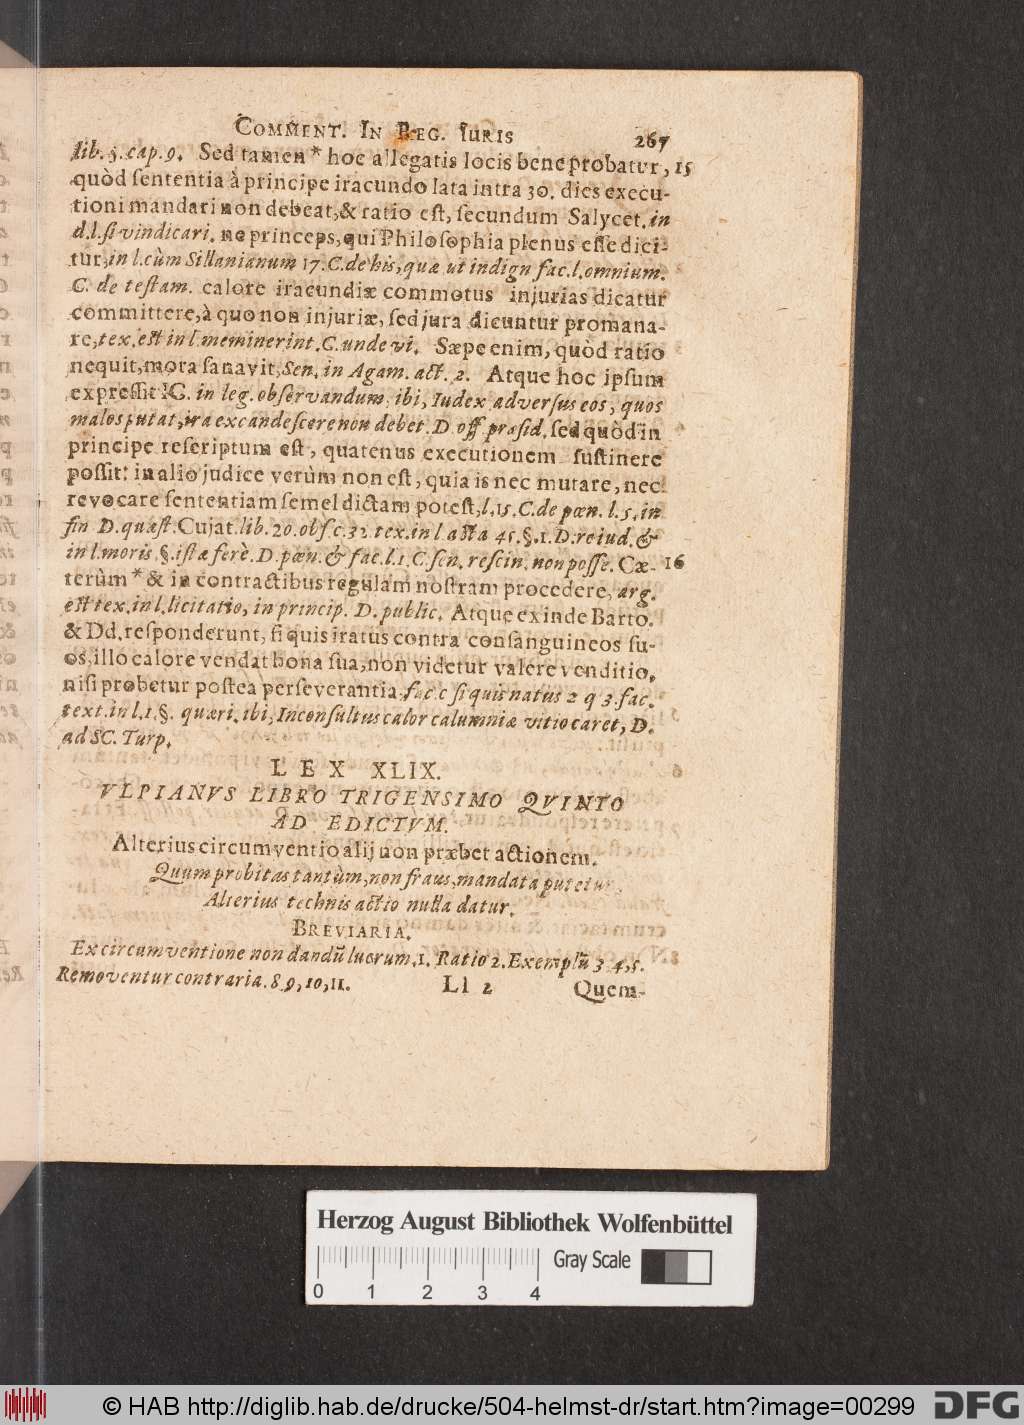 COMMENT. IN REG. IURIS 267
lib. 5. cap. 9. Sed tamen * hoc allegatis locis bene probatur, 15
quòd sententia à principe iracundo lata intra 30. dies execu-
tioni mandari non debeat, & ratio est, secundum Salycet. in
d. l. si vindicari. ne princeps, qui Philosophia plenus esse dici-
tur, in l. cùm Sillanianum 17. C. de his, quæ ut indign fac. l. omnium.
C. de testam. calore iracundiæ commotus injurias dicatur
committere, à quo non injuriæ, sed jura dicuntur promana-
re, tex. est in l. meminerint. C. unde vi. Sæpe enim, quòd ratio
nequit, mora sanavit, Sen. in Agam. act. 2. Atque hoc ipsum
expressit IC. in leg. observandum. ibi, Iudex adversus eos, quos
malos putat, ira excandescere non debet. D off. præsid. sed quòd in
principe rescriptum est, quatenus executionem sustinere
possit: in alio judice verùm non est, quia is nec mutare, nec
revocare sententiam semel dictam potest, l. 15. C. de pœn. l. 5. in
fin D. quæst. Cujat. lib. 20. obs. c. 32. tex. in l acta 45. §. 1. D. re iud. &
in l. moris §. istæ ferè. D. pœn. & fac. l. 1. C. sen. rescin. non posse. Cæ- 16
terùm * & in contractibus regulam nostram procedere, arg.
est tex. in l. licitatio, in princip. D. public. Atque exinde Barto.
& Dd. responderunt, si quis iratus contra consanguineos su-
os, illo calore vendat bona sua, non videtur valere venditio,
nisi probetur postea perseverantia, fac. c si quis natus 2 q 3. fac.
text. in l. 1. §. quæri. ibi, Inconsultus calor calumniæ vitio caret, D.
ad SC. Turp.
LEX XLIX.
VLPIANVS LIBRO TRIGENSIMO QVINTO
AD EDICTVM.
Alterius circumventio alij non præbet actionem.
Quum probitas tantùm, non fraus, mandata putetur,
Alterius technis actio nulla datur.
BREVIARIA.
Ex circumventione non dandū lucrum. 1. Ratio 2. Exemplū 3 4, 5.
Removentur contraria. 8. 9, 10, 11. Ll 2 Quem-
Herzog August Bibliothek Wolfenbüttel
Gray Scale
0 1 2 3 4
© HAB http://diglib.hab.de/drucke/504-helmst-dr/start.htm?image=00299 DFG